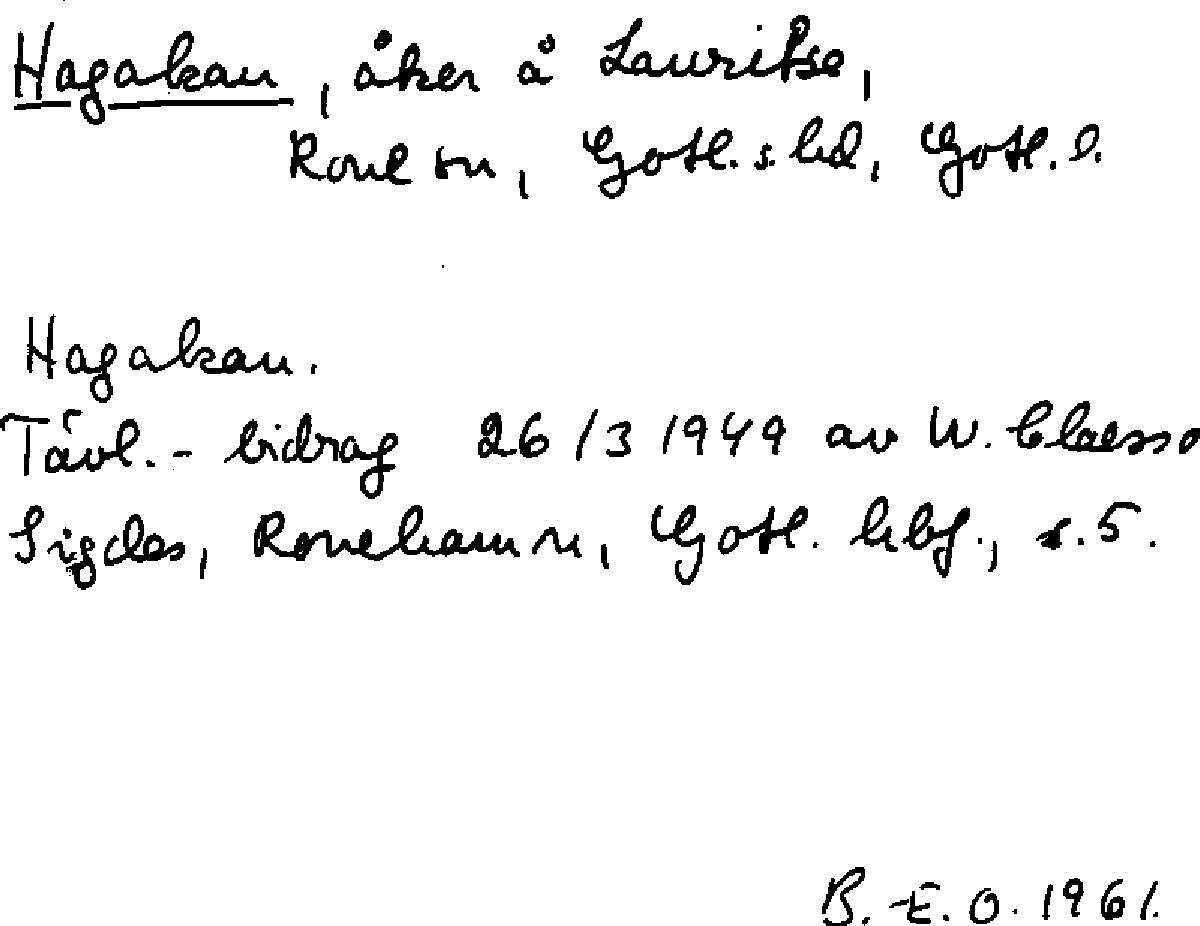 Hagakau, åker å Lauritse,
Rone sn, Gotl. s. hd, Gotl. l.
Hagakau.
Tävl.-bidrag 26/3 1949 av W. Claesso
Sigdes, Ronehamn, Gotl. hbf., s. 5.
B.-E. O. 1961.